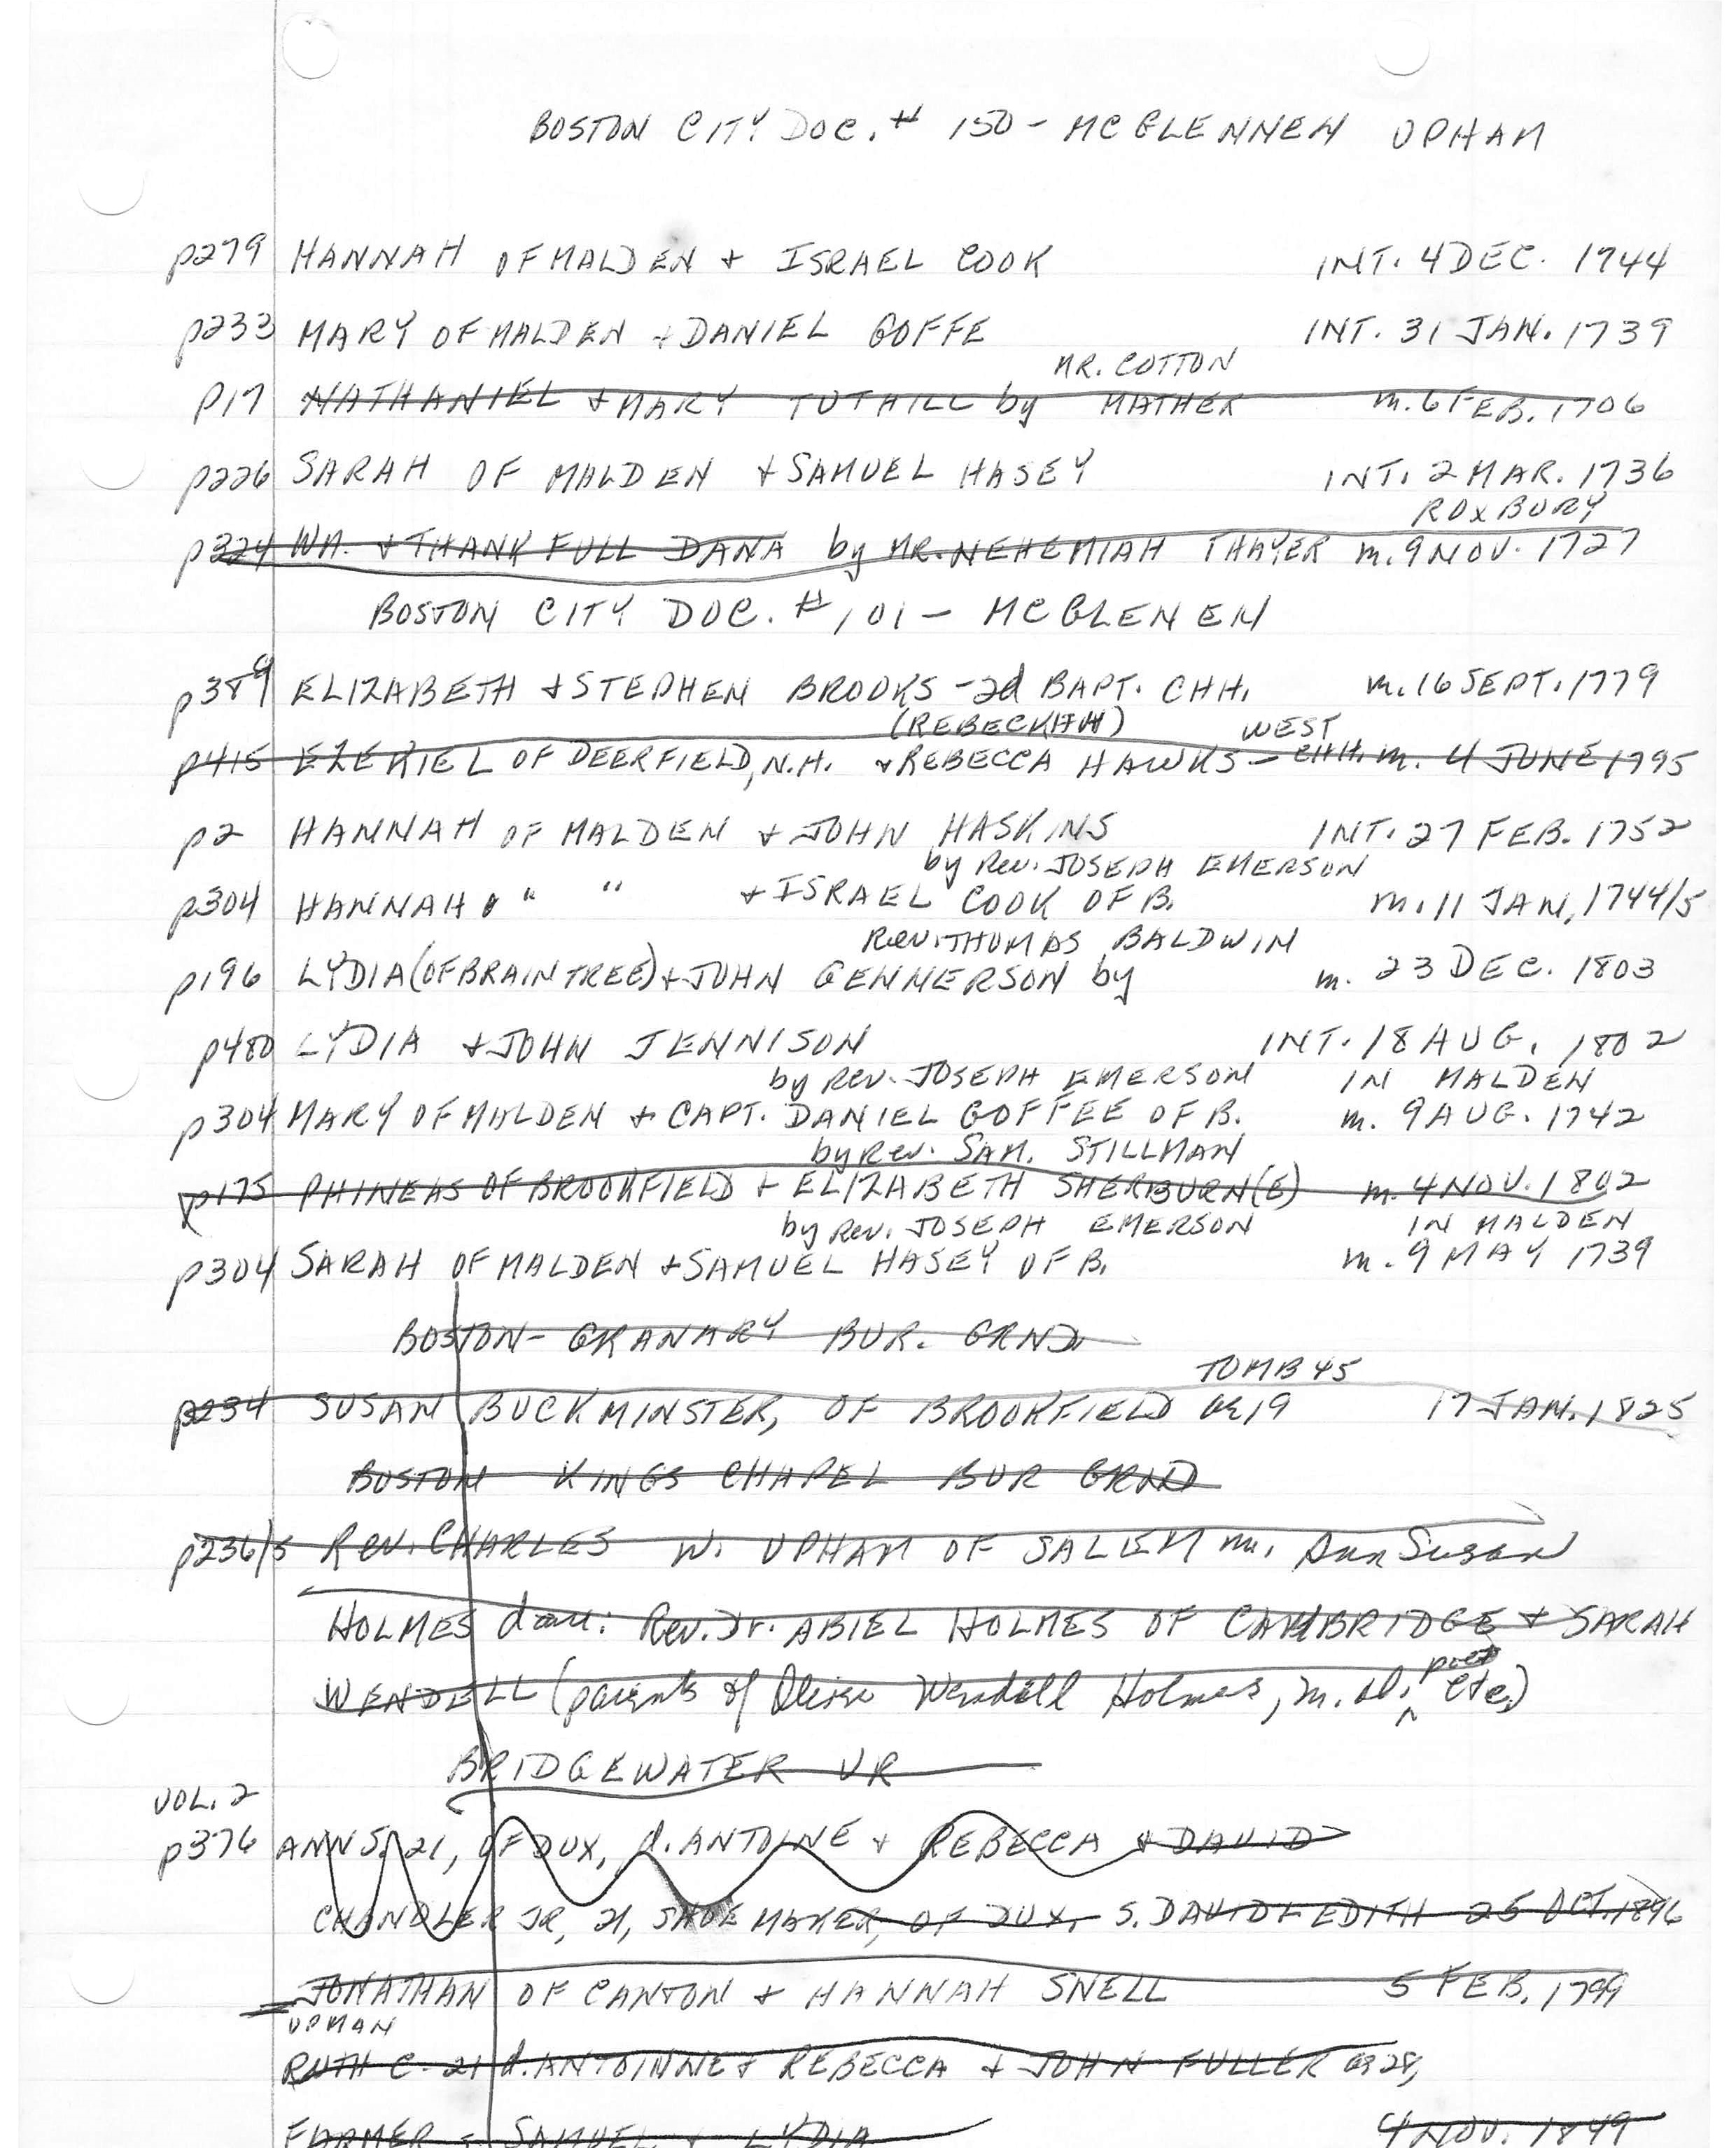 BOSTON CITY DOC. # 150 - MCGLENNEN UPHAM
p279 HANNAH OF MALDEN + ISRAEL COOK INT. 4 DEC. 1744
p233 MARY OF MALDEN + DANIEL GOFFE INT. 31 JAN. 1739
MR. COTTON
p17 NATHANIEL + MARY TUTHILL by MATHER m. 6 FEB. 1706
p226 SARAH OF MALDEN + SAMUEL HASEY INT. 2 MAR. 1736
ROXBURY
p324 WM. + THANKFULL DANA by MR. NEHEMIAH THAYER m. 9 NOV. 1727
BOSTON CITY DOC. # 101 - MCGLENEN
p389 ELIZABETH + STEPHEN BROOKS - 2d BAPT. CHH. m. 16 SEPT. 1779
(REBECKAH) WEST
p415 EZEKIEL OF DEERFIELD, N.H. + REBECCA HAWKS - CHH. m. 4 JUNE 1795
p2 HANNAH OF MALDEN + JOHN HASKINS INT. 27 FEB. 1752
by Rev. JOSEPH EMERSON
p304 HANNAH " " + ISRAEL COOK OF B. m. 11 JAN, 1744/5
Rev. THOMAS BALDWIN
p196 LYDIA (OF BRAINTREE) + JOHN GENNERSON by m. 23 DEC. 1803
p480 LYDIA + JOHN JENNISON INT. 18 AUG. 1802
by Rev. JOSEPH EMERSON IN MALDEN
p304 MARY OF MALDEN + CAPT. DANIEL GOFFEE OF B. m. 9 AUG. 1742
by Rev. SAM. STILLMAN
p175 PHINEAS OF BROOKFIELD + ELIZABETH SHERBURN(E) m. 4 NOV. 1802
by Rev. JOSEPH EMERSON IN MALDEN
p304 SARAH OF MALDEN + SAMUEL HASEY OF B. m. 9 MAY 1739
BOSTON - GRANARY BUR. GRND.
TOMB 45
p234 SUSAN BUCKMINSTER, OF BROOKFIELD æ 19 17 JAN. 1825
BOSTON KINGS CHAPEL BUR GRND
p236/5 Rev. CHARLES W. UPHAM OF SALEM m. Ann Susan
HOLMES dau: Rev. Dr. ABIEL HOLMES OF CAMBRIDGE + SARAH
poet
WENDELL (parents of Oliver Wendell Holmes, M.D., ^ etc.)
BRIDGEWATER VR
VOL. 2
p376 ANN S. 21, OF DUX, d. ANTOINE + REBECCA + DAVID
CHANDLER JR, 21, SHOEMAKER, OF DUX, S. DAVID + EDITH 25 OCT. 1846
JONATHAN OF CANTON + HANNAH SNELL 5 FEB. 1799
UPHAN
RUTH C. 21 d. ANTOINNE + REBECCA + JOHN FULLER æ 28,
FARMER S SAMUEL + LYDIA 4 NOV. 1849